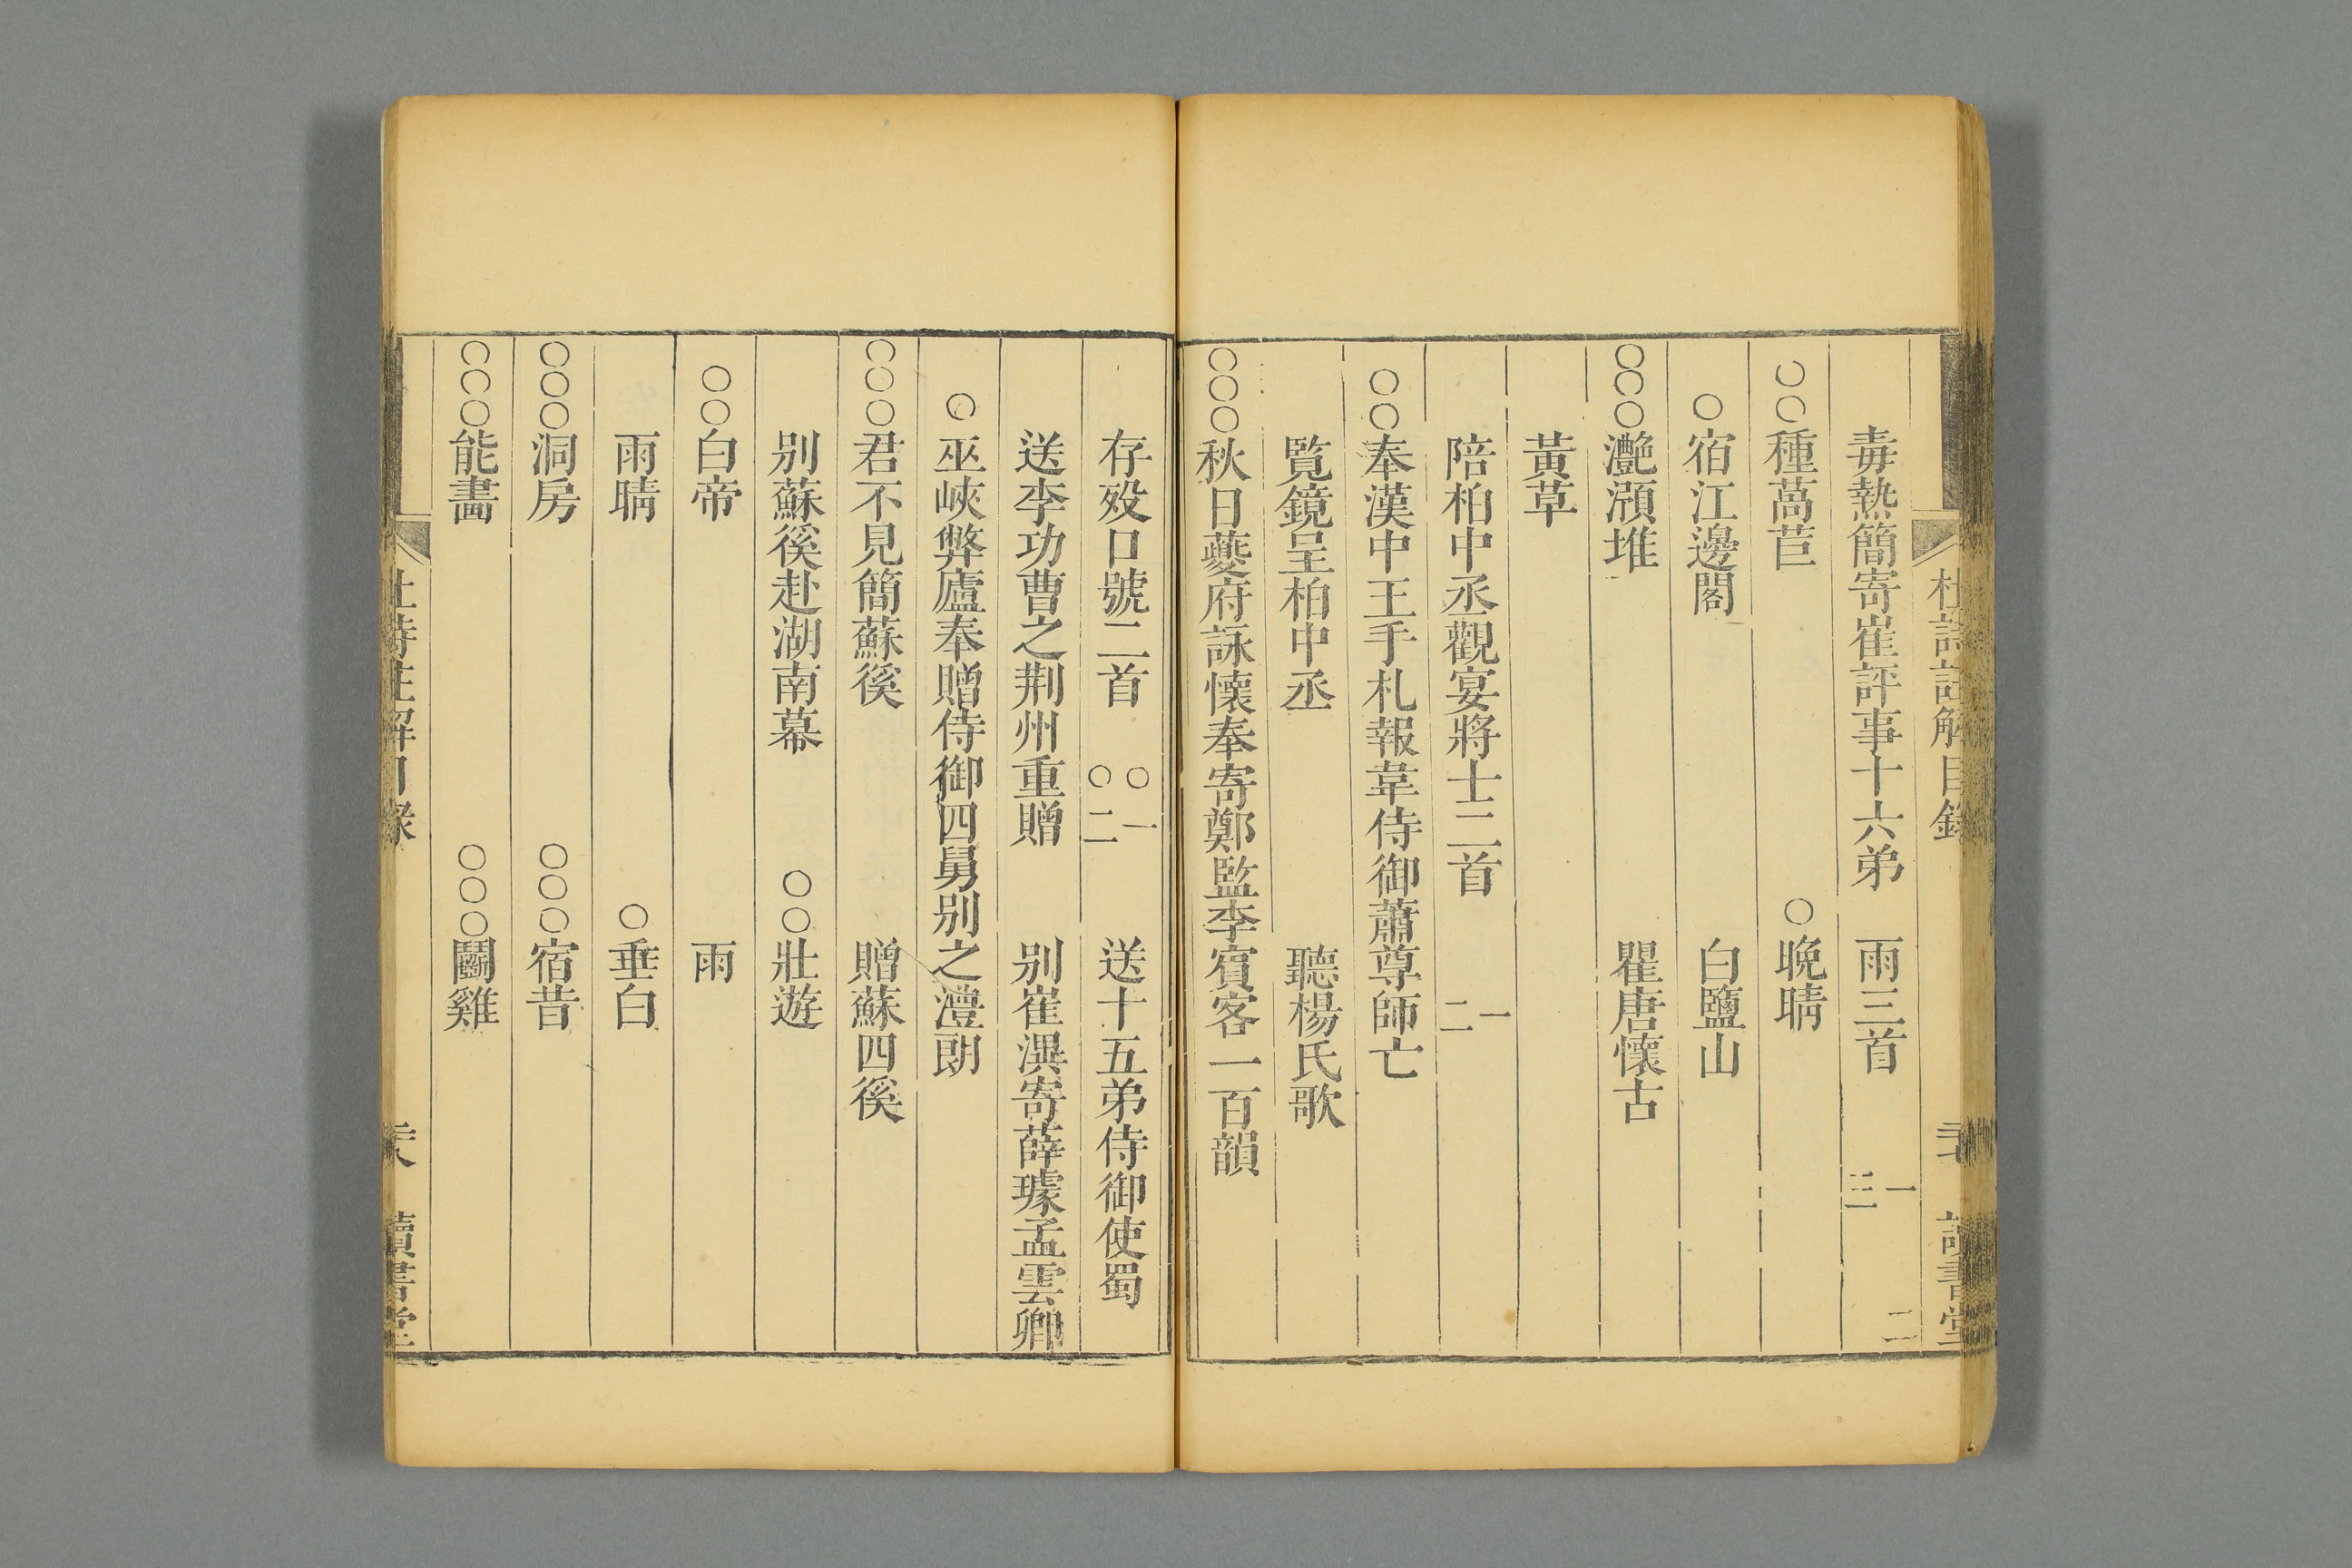 杜詩註解目錄 讀書堂
毒熱簡寄崔評事十六弟 雨三首 一 二 三
○○種萵苣 ○晚晴
○宿江邊閣 白鹽山
○○○灔澦堆 瞿唐懷古
黃草
陪柏中丞觀宴將士二首 一 二
○○奉漢中王手札報韋侍御蕭尊師亡
覧鏡呈柏中丞 聽楊氏歌
○○○秋日夔府詠懷奉寄鄭監李賓客一百韻
存歿口號二首 ○一 ○二 送十五弟侍御使蜀
送李功曹之荆州重贈 别崔潩寄薛璩孟雲卿
○巫峽弊廬奉贈侍御四舅别之澧朗
○○○君不見簡蘇徯 贈蘇四徯
别蘇徯赴湖南幕 ○○壯遊
○○白帝 雨
雨晴 ○垂白
○○○洞房 ○○○宿昔
○○○能畫 ○○○鬭雞
杜詩註解目錄 讀書堂